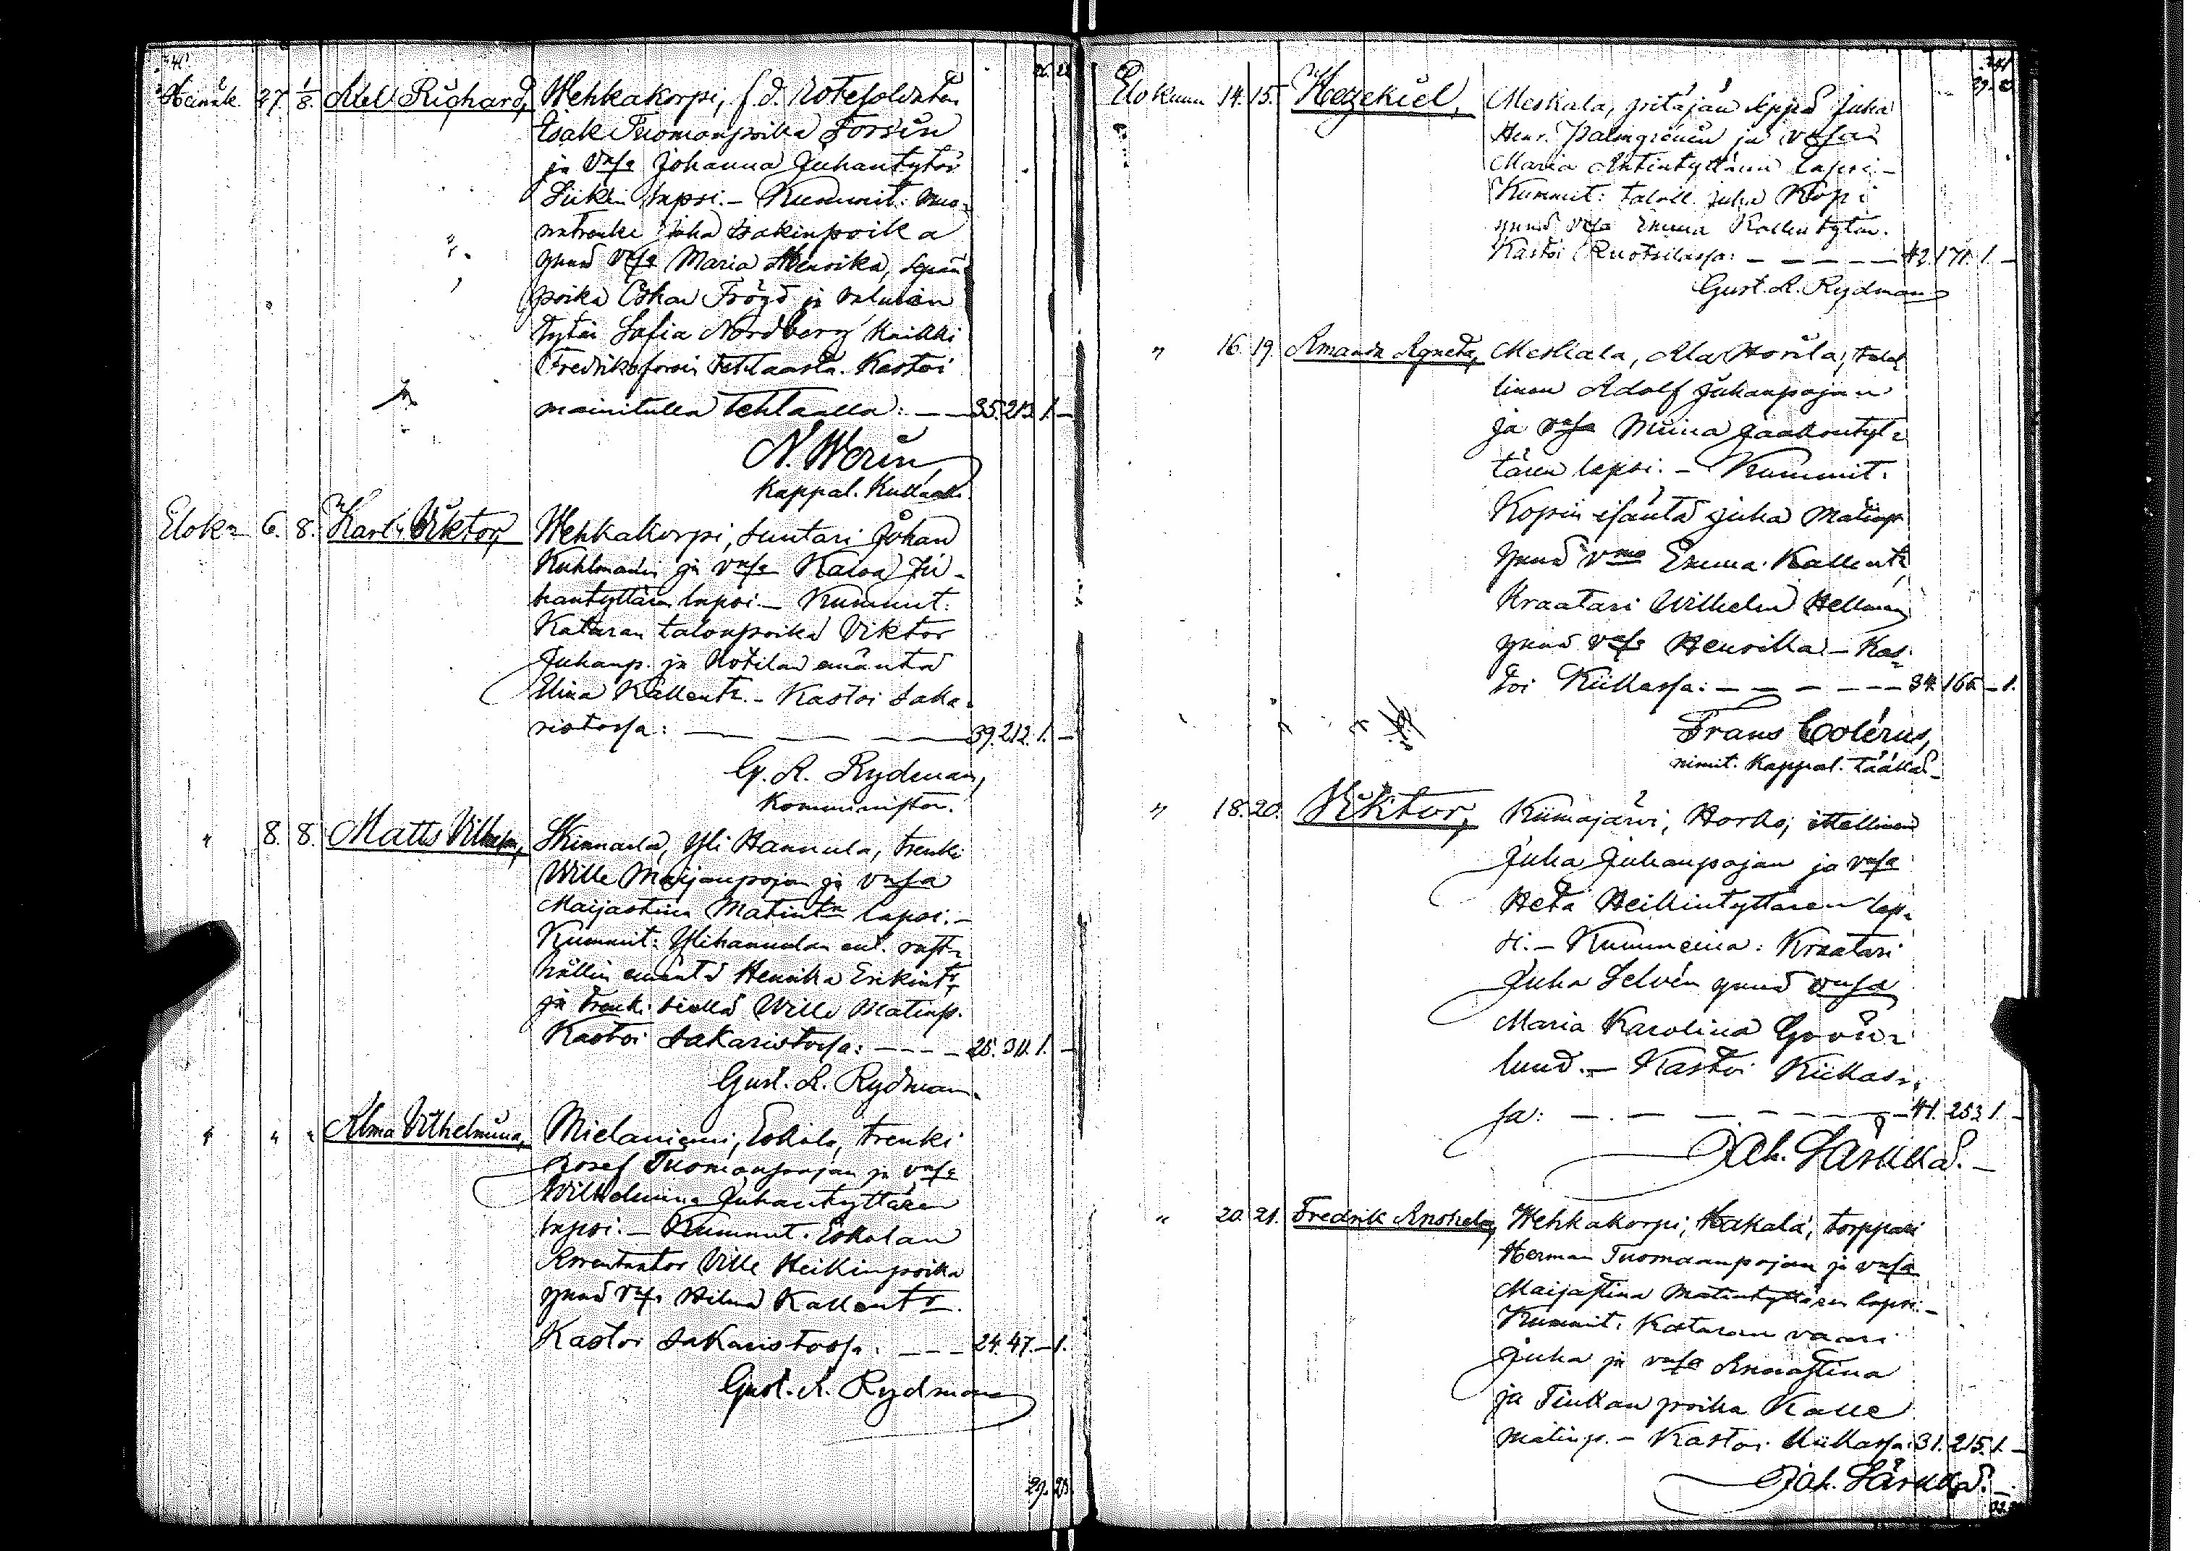 Heinäk. 27. 1/8. Abel Richard, Wehkakorpi, f. d. Rotesoldaten
Isak Tuomanpoika Forsin
ja vaf. Johanna Juhantytär
lapsi. – Kummit:
Juha Isakinpoika
ynnä vaf. Maria Henrika,
poika Oskar Frögd ja
tytär Sofia Nordberg kaikki
Fredriksforsin Tehtaasta. Kastoi
mainitulla tehtaalla: — — 35. 213. 1. –
N. Worin,
Kappal. Kullaalla.
Elok. 6. 8. Karl Viktor, Wehkakorpi, Suntari Johan
Kuhlmanin ja vaf. Ju-
hantyttären lapsi. – Kummit:
Kataran talonpoika Viktor
Juhanp. ja Kotilan emäntä
Miina Kallentr. – Kastoi Saka-
ristossa: — — — 39. 212. 1. –
G. A. Rydman,
Komministr.
" 8. 8. Matts Vilhelm, Skinnarla, Yli Hannula, trenki
Wille Maijanpojan ja vafa
Maijastina Matintr lapsi. –
Kummit: Ylihannulan ent. rust-
hällin emäntä Henrika Erikintr.
ja trenk. sieltä Wille Matinp.
Kastoi Sakaristossa: – – – – 25. 311. 1. –
Gust. A. Rydman.
" " " Alma Vilhelmina, Mielaniemi, Eskola, trenki
Josef Tuomanpojan ja vafa
Wilhelmina Juhantyttären
lapsi. – Kummit: Eskolan
Arrentaator Ville Heikinpoika
ynnä vaf. Hilma Kallentr.
Kastoi Sakaristossa: – – – 24. 47. – 1.
Gust. A. Rydman
29. 23.
Elokuun 14. 15. Hezekiel, Meskala, pitäjän seppä Juha
Henr. Palmgrenin ja vafan
Maria Antintyttären lapsi. –
Kummit: taloll. Juha Kopi
ynnä vafa Emma Kallentytär.
Kastoi Ruotsilassa: – – – – – 42. 171. 1. –
Gust. A. Rydman
" 16. 19. Amanda Agneta, Meskala, Ala Horila, talol-
linen Adolf Juhanpojan
ja vafa Miina Jaakontyt-
tären lapsi. – Kummit:
Kopin isäntä Juha Matinp.
ynnä vmo Emma Kallentr.
Kraatari Wilhelm Hellman
ynnä vaf. Henrikka – Kas-
toi Kiikassa: – – – – – 34. 165. – 1.
Frans Colérus,
nimit. Kappal. täällä. –
" 18. 20. Viktor, Kiimajärvi, Horko, itsellinen
Juha Juhanpojan ja vafa
Heta Heikintyttären lap-
si. – Kummeina: Kraatari
Juha Selvén ynnä vafa
Maria Karolina Grön-
lund. – Kastoi Kiikas-
sa: — — — — — 41. 253. 1. –
Joh. Särkkä. –
" 20. 21. Fredrik Anshelm, Wehkakorpi, Hakala, torppari
Herman Tuomaanpojan ja vafa
Maijastina Matintyttären lapsi. –
Kummit: Kataran vaari
Juha ja vafa Annastina
ja Tiukan poika Kalle
Matinp. – Kastoi Kiikassa: 31. 215. 1. –
Joh. Särkkä. –